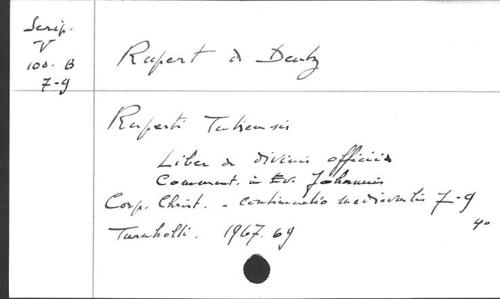 Scrip.
V
100. B
7-9
Rupert de Deutz
Ruperti Tuitiensis
Liber de divinis officiis
Comment. in Ev. Johannis
Corp. Christ. - continuatio mediaevalis 7-9
Turnholti. 1967.69
40